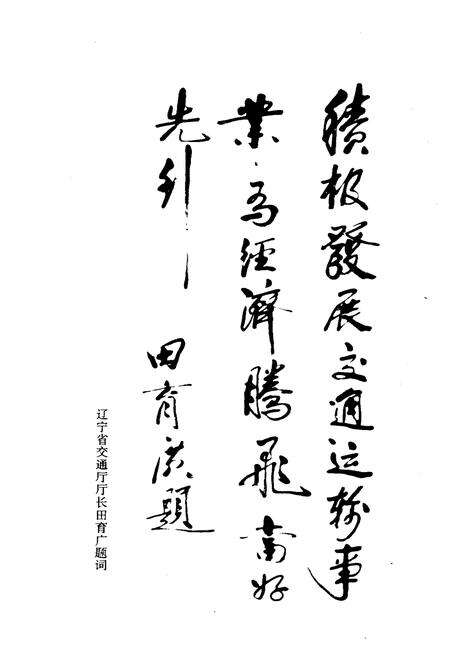 積极發展交通运輸事
業，为經濟騰飛当好
先行
田育广題
辽宁省交通厅厅长田育广题词